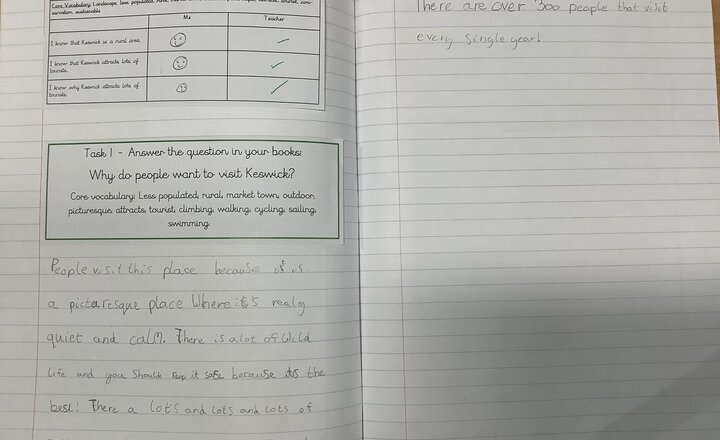 Core Vocabulary: Landscape, less populated, rural, tourist, con-
servation, sustainable
Me Teacher
I know that Keswick is a rural area.
I know that Keswick attracts lots of
tourists.
I know why Keswick attracts lots of
tourists.
Task 1 - Answer the question in your books:
Why do people want to visit Keswick?
Core vocabulary: Less populated, rural, market town, outdoor,
picturesque, attracts, tourist, climbing, walking, cycling, sailing,
swimming.
People visit this place because it is
a picturesque place Where it's realy
quiet and calm. There is a lot of Wild
life and you should it safe because its the
best! There a lots and lots and lots of
There are over 300 people that visit
every single year!